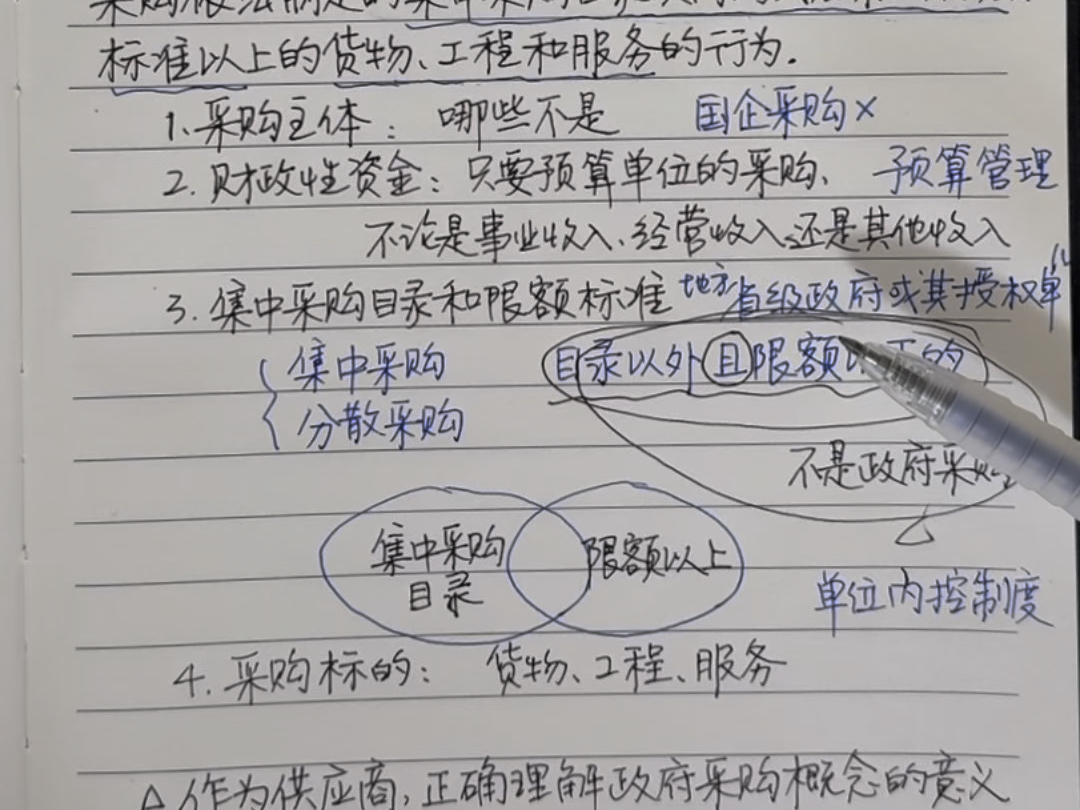 采购限法制定的集中采购目录
标准以上的货物、工程和服务的行为.
1. 采购主体: 哪些不是 国企采购×
2. 财政性资金: 只要预算单位的采购、 预算管理
不论是事业收入、经营收入、还是其他收入
3. 集中采购目录和限额标准 地方 省级政府或其授权单
集中采购 目录以外且限额以下的
分散采购
不是政府采购
集中采购 限额以上
目录
单位内控制度
4. 采购标的: 货物、工程、服务
△作为供应商,正确理解政府采购概念的意义